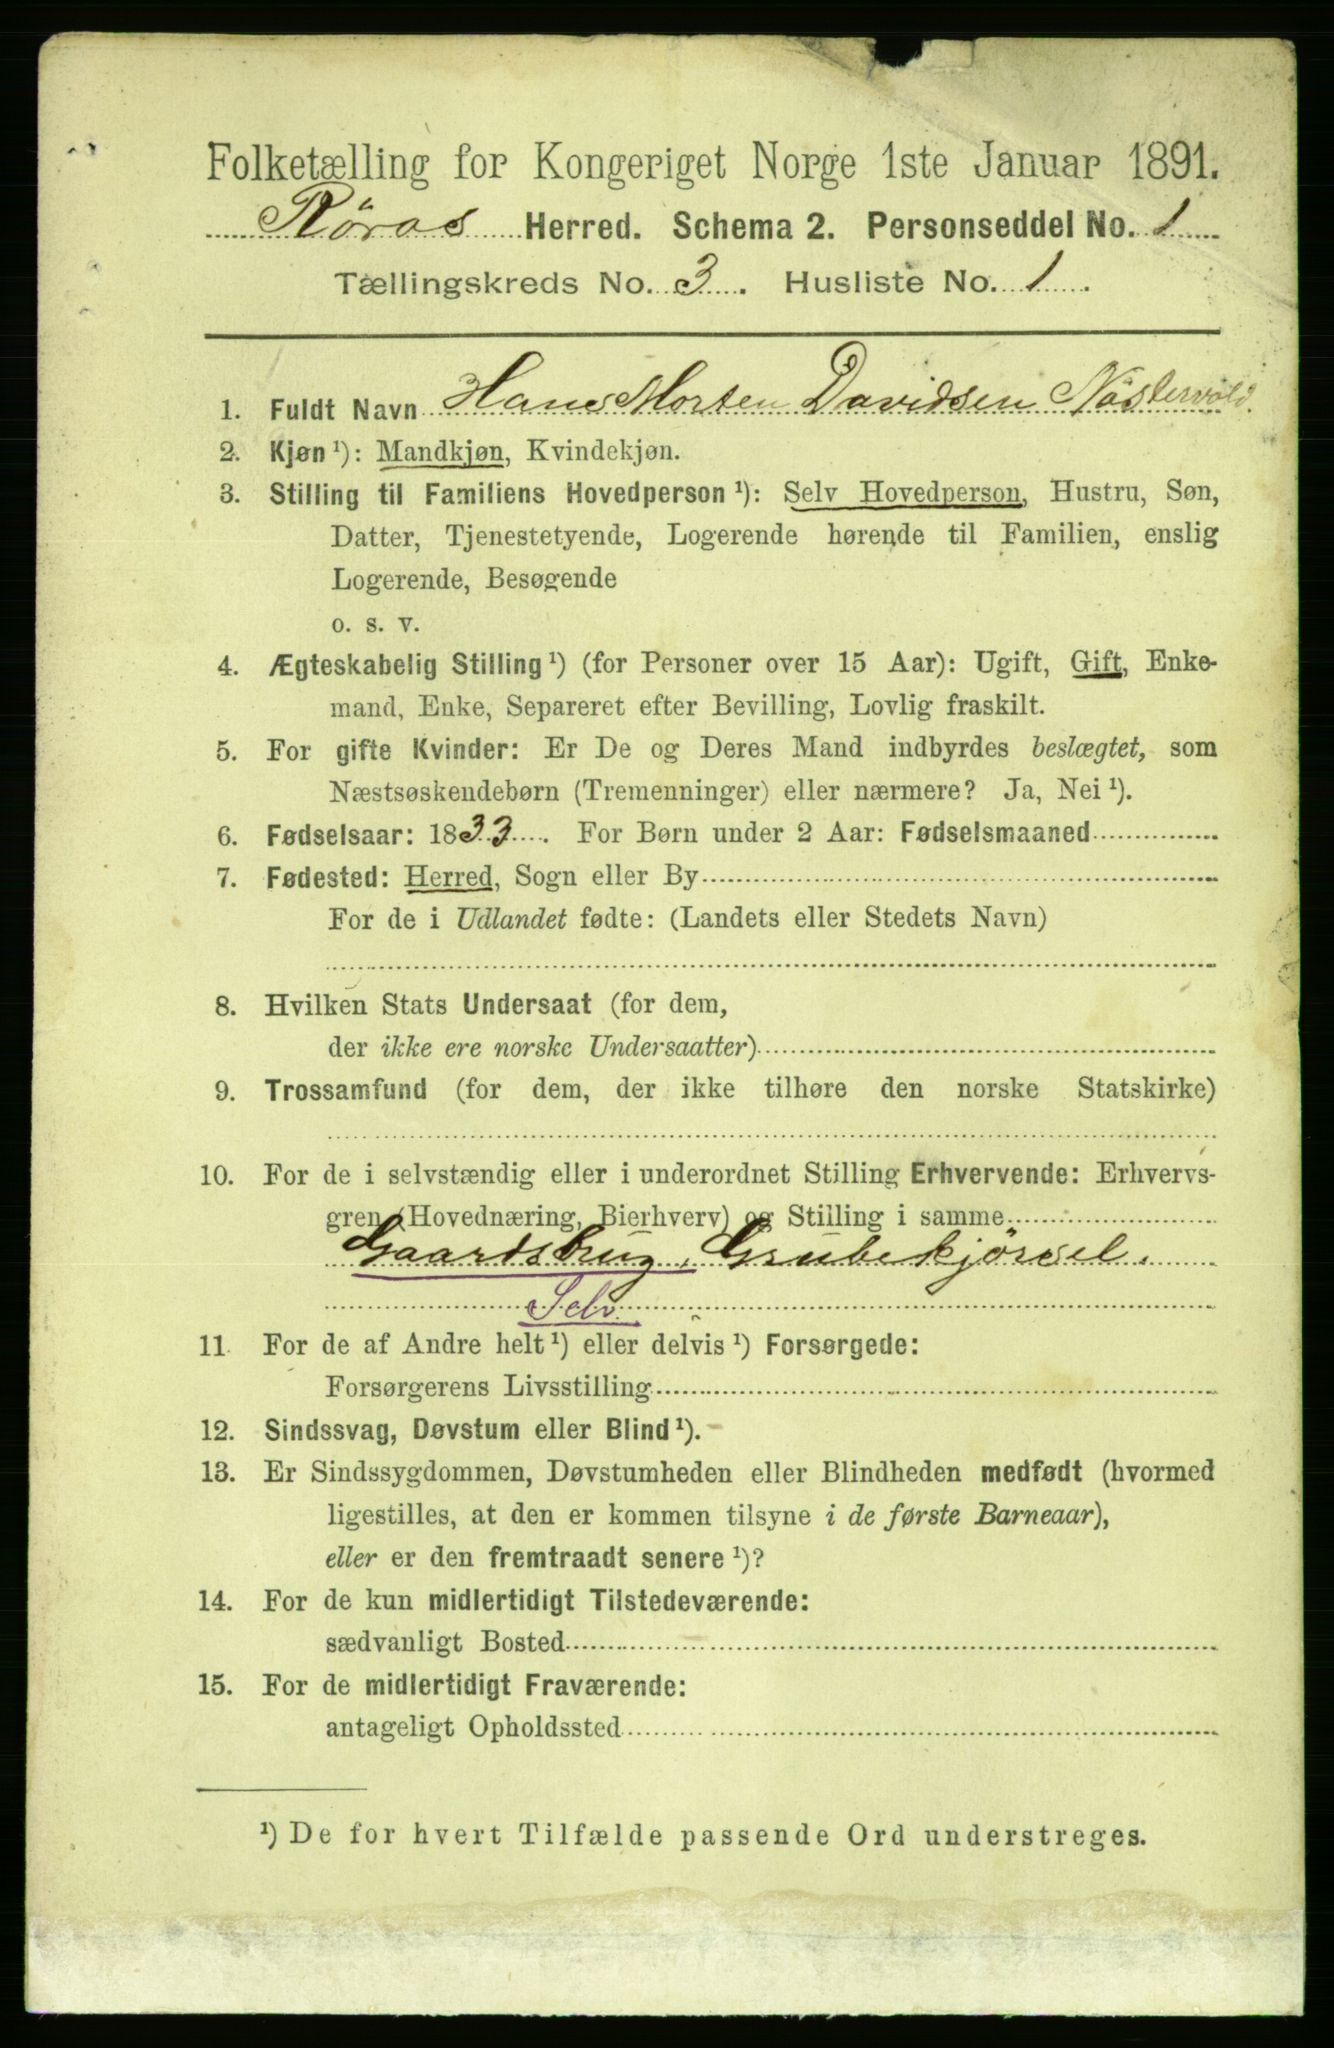 Folketælling for Kongeriget Norge 1ste Januar 1891.
Røros Herred. Schema 2. Personseddel No. 1
Tællingskreds No. 3. Husliste No. 1.
1. Fuldt Navn Hans Morten Davidsen Nöstervold.
2. Kjøn ¹): Mandkjøn, Kvindekjøn.
3. Stilling til Familiens Hovedperson ¹): Selv Hovedperson, Hustru, Søn,
Datter, Tjenestetyende, Logerende hørende til Familien, enslig
Logerende, Besøgende
o. s. v.
4. Ægteskabelig Stilling ¹) (for Personer over 15 Aar): Ugift, Gift, Enke-
mand, Enke, Separeret efter Bevilling, Lovlig fraskilt.
5. For gifte Kvinder: Er De og Deres Mand indbyrdes beslægtet, som
Næstsøskendebørn (Tremenninger) eller nærmere? Ja, Nei ¹).
6. Fødselsaar: 1833. For Børn under 2 Aar: Fødselsmaaned
7. Fødested: Herred, Sogn eller By
For de i Udlandet fødte: (Landets eller Stedets Navn)
8. Hvilken Stats Undersaat (for dem,
der ikke ere norske Undersaatter)
9. Trossamfund (for dem, der ikke tilhøre den norske Statskirke)
10. For de i selvstændig eller i underordnet Stilling Erhvervende: Erhvervs-
gren (Hovednæring, Bierhverv) og Stilling i samme
Gaardsbrug, Grubekjörsel.
Selv.
11 For de af Andre helt ¹) eller delvis ¹) Forsørgede:
Forsørgerens Livsstilling
12. Sindssvag, Døvstum eller Blind ¹).
13. Er Sindssygdommen, Døvstumheden eller Blindheden medfødt (hvormed
ligestilles, at den er kommen tilsyne i de første Barneaar),
eller er den fremtraadt senere ¹)?
14. For de kun midlertidigt Tilstedeværende:
sædvanligt Bosted
15. For de midlertidigt Fraværende:
antageligt Opholdssted
¹) De for hvert Tilfælde passende Ord understreges.